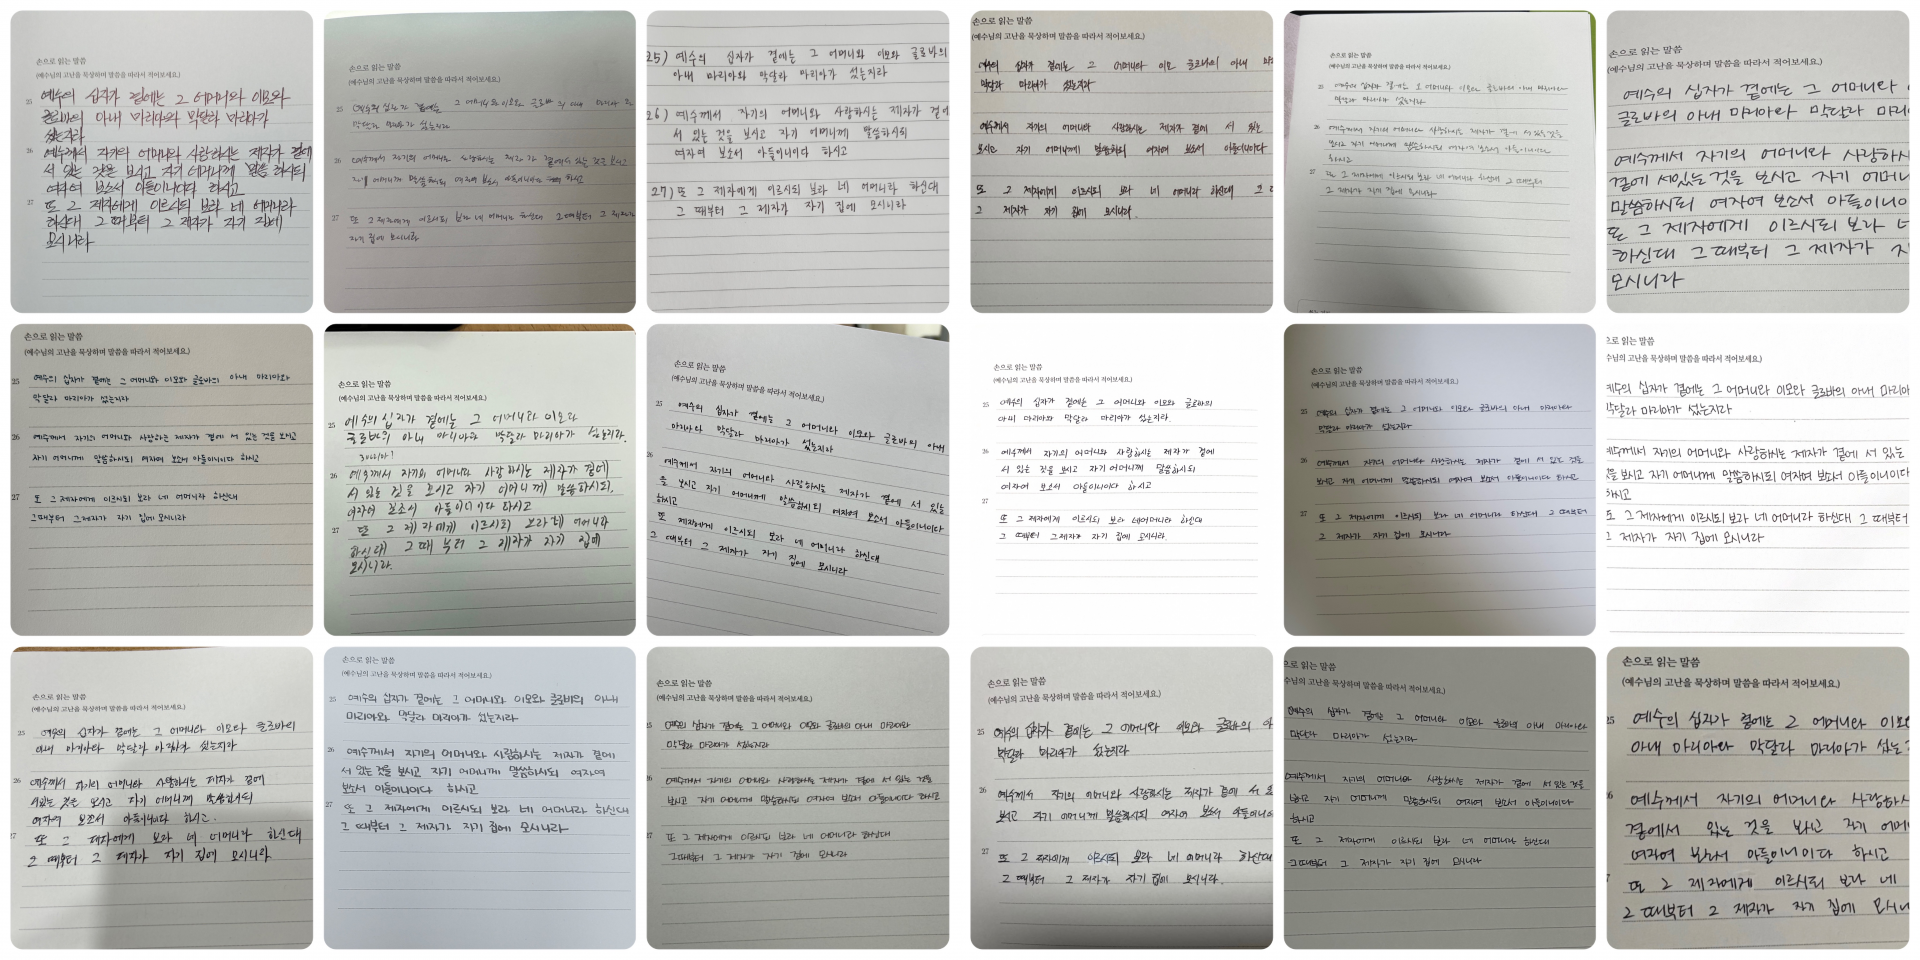 손으로 읽는 말씀
(예수님의 고난을 묵상하며 말씀을 따라서 적어보세요.)
25 예수의 십자가 곁에는 그 어머니와 이모와
글로바의 아내 마리아와 막달라 마리아가
섰는지라
26 예수께서 자기의 어머니와 사랑하시는 제자가 곁에
서 있는 것을 보시고 자기 어머니께 말씀하시되
여자여 보소서 아들이니이다 하시고
27 또 그 제자에게 이르시되 보라 네 어머니라
하신대 그 때부터 그 제자가 자기 집에
모시니라
손으로 읽는 말씀
(예수님의 고난을 묵상하며 말씀을 따라서 적어보세요.)
25 예수의 십자가 곁에는 그 어머니와 이모와 글로바의 아내 마리아와
막달라 마리아가 섰는지라
26 예수께서 자기의 어머니와 사랑하시는 제자가 곁에 서 있는 것을 보시고
자기 어머니께 말씀하시되 여자여 보소서 아들이니이다 하시고
27 또 그 제자에게 이르시되 보라 네 어머니라 하신대 그 때부터 그 제자가
자기 집에 모시니라
25) 예수의 십자가 곁에는 그 어머니와 이모와 글로바의
아내 마리아와 막달라 마리아가 섰는지라
26) 예수께서 자기의 어머니와 사랑하시는 제자가 곁에
서 있는 것을 보시고 자기 어머니께 말씀하시되
여자여 보소서 아들이니이다 하시고
27) 또 그 제자에게 이르시되 보라 네 어머니라 하신대
그 때부터 그 제자가 자기 집에 모시니라
손으로 읽는 말씀
(예수님의 고난을 묵상하며 말씀을 따라서 적어보세요.)
예수의 십자가 곁에는 그 어머니와 이모 글로바의 아내
막달라 마리아가 섰는지라
예수께서 자기의 어머니와 사랑하시는 제자가 곁에 서 있는
보시고 자기 어머니께 말씀하시되 여자여 보소서 아들이니이다
또 그 제자에게 이르시되 보라 네 어머니라 하신대 그
그 제자가 자기 집에 모시니라.
손으로 읽는 말씀
(예수님의 고난을 묵상하며 말씀을 따라서 적어보세요.)
25 예수의 십자가 곁에는 그 어머니와 이모와 글로바의 아내 마리아와
막달라 마리아가 섰는지라
26 예수께서 자기의 어머니와 사랑하시는 제자가 곁에 서 있는 것을
보시고 자기 어머니께 말씀하시되 여자여 보소서 아들이니이다
하시고
27 또 그 제자에게 이르시되 보라 네 어머니라 하신대 그 때부터
그 제자가 자기 집에 모시니라
손으로 읽는 말씀
(예수님의 고난을 묵상하며 말씀을 따라서 적어보세요.)
예수의 십자가 곁에는 그 어머니와
글로바의 아내 마리아와 막달라
예수께서 자기의 어머니와 사랑하시
곁에 서있는 것을 보시고 자기 어머니
말씀하시되 여자여 보소서 아들이니이
또 그 제자에게 이르시되 보라 네
하신대 그 때부터 그 제자가
모시니라
손으로 읽는 말씀
(예수님의 고난을 묵상하며 말씀을 따라서 적어보세요.)
25 예수의 십자가 곁에는 그 어머니와 이모와 글로바의 아내 마리아와
막달라 마리아가 섰는지라
26 예수께서 자기의 어머니와 사랑하시는 제자가 곁에 서 있는 것을 보시고
자기 어머니께 말씀하시되 여자여 보소서 아들이니이다 하시고
27 또 그 제자에게 이르시되 보라 네 어머니라 하신대
그 때부터 그 제자가 자기 집에 모시니라
손으로 읽는 말씀
(예수님의 고난을 묵상하며 말씀을 따라서 적어보세요.)
25 예수의 십자가 곁에는 그 어머니와 이모와
글로바의 아내 마리아와 막달라 마리아가 섰는지라.
26 예수께서 자기의 어머니와 사랑하시는 제자가 곁에
서 있는 것을 보시고 자기 어머니께 말씀하시되,
여자여 보소서 아들이니이다 하시고
27 또 그 제자에게 이르시되 보라 네 어머니라
하신대 그 때 부터 그 제자가 자기 집에
모시니라.
손으로 읽는 말씀
(예수님의 고난을 묵상하며 말씀을 따라서 적어보세요.)
25 예수의 십자가 곁에는 그 어머니와 이모와 글로바의 아내
마리아와 막달라 마리아가 섰는지라
26 예수께서 자기의 어머니와 사랑하시는 제자가 곁에 서 있는
을 보시고 자기 어머니께 말씀하시되 여자여 보소서 아들이니이다
하시고
또 제자에게 이르시되 보라 네 어머니라 하신대
그 때부터 그 제자가 자기 집에 모시니라
손으로 읽는 말씀
(예수님의 고난을 묵상하며 말씀을 따라서 적어보세요.)
25 예수의 십자가 곁에는 그 어머니와 이모와 글로바의
아내 마리아와 막달라 마리아가 섰는지라.
26 예수께서 자기의 어머니와 사랑하시는 제자가 곁에
서 있는 것을 보시고 자기 어머니께 말씀하시되
여자여 보소서 아들이니이다 하시고
27
또 그 제자에게 이르시되 보라 네어머니라 하신대
그 때부터 그제자가 자기 집에 모시니라.
손으로 읽는 말씀
(예수님의 고난을 묵상하며 말씀을 따라서 적어보세요.)
25 예수의 십자가 곁에는 그 어머니와 이모와 글로바의 아내 마리아와
막달라 마리아가 섰는지라
26 예수께서 자기의 어머니와 사랑하시는 제자가 곁에 서 있는 것을
보시고 자기 어머니께 말씀하시되 여자여 보소서 아들이니이다 하시고
27 또 그 제자에게 이르시되 보라 네 어머니라 하신대 그 때부터
그 제자가 자기 집에 모시니라
으로 읽는 말씀
수님의 고난을 묵상하며 말씀을 따라서 적어보세요.)
예수의 십자가 곁에는 그 어머니와 이모와 글로바의 아내 마리아
막달라 마리아가 섰는지라
예수께서 자기의 어머니와 사랑하시는 제자가 곁에 서 있는
것을 보시고 자기 어머니께 말씀하시되 여자여 보소서 아들이니이다
하시고
또 그 제자에게 이르시되 보라 네 어머니라 하신대 그 때부터
그 제자가 자기 집에 모시니라
손으로 읽는 말씀
(예수님의 고난을 묵상하며 말씀을 따라서 적어보세요.)
25 예수의 십자가 곁에는 그 어머니와 이모와 글로바의
아내 마리아와 막달라 마리아가 섰는지라
26 예수께서 자기의 어머니와 사랑하시는 제자가 곁에
서있는 것을 보시고 자기 어머니께 말씀하시되
여자여 보소서 아들이니이다 하시고.
또 그 제자에게 보라 네 어머니라 하신대
그 때부터 그 제자가 자기 집에 모시니라
손으로 읽는 말씀
(예수님의 고난을 묵상하며 말씀을 따라서 적어보세요.)
25 예수의 십자가 곁에는 그 어머니와 이모와 글로바의 아내
마리아와 막달라 마리아가 섰는지라
26 예수께서 자기의 어머니와 사랑하시는 제자가 곁에
서 있는 것을 보시고 자기 어머니께 말씀하시되 여자여
보소서 아들이니이다 하시고
27 또 그 제자에게 이르시되 보라 네 어머니라 하신대
그 때부터 그 제자가 자기 집에 모시니라
손으로 읽는 말씀
(예수님의 고난을 묵상하며 말씀을 따라서 적어보세요.)
25 예수의 십자가 곁에는 그 어머니와 이모와 글로바의 아내 마리아와
막달라 마리아가 섰는지라
예수께서 자기의 어머니와 사랑하시는 제자가 곁에 서 있는 것을
보시고 자기 어머니께 말씀하시되 여자여 보소서 아들이니이다 하시고
또 그 제자에게 이르시되 보라 네 어머니라 하신대
그때부터 그 제자가 자기 집에 모시니라
손으로 읽는 말씀
(예수님의 고난을 묵상하며 말씀을 따라서 적어보세요.)
25 예수의 십자가 곁에는 그 어머니와 이모와 글로바의 아
막달라 마리아가 섰는지라
26 예수께서 자기의 어머니와 사랑하시는 제자가 곁에 서
보시고 자기 어머니께 말씀하시되 여자여 보소서 아들이니이
27 또 그 제자에게 이르시되 보라 네 어머니라 하신대
그 때부터 그 제자가 자기 집에 모시니라.
손으로 읽는 말씀
(예수님의 고난을 묵상하며 말씀을 따라서 적어보세요.)
예수의 십자가 곁에는 그 어머니와 이모와 글로바의 아내 마리아와
막달라 마리아가 섰는지라
예수께서 자기의 어머니와 사랑하시는 제자가 곁에 서 있는 것을
보시고 자기 어머니께 말씀하시되 여자여 보소서 아들이니이다
하시고
또 그 제자에게 이르시되 보라 네 어머니라 하신대
그때부터 그 제자가 자기 집에 모시니라
손으로 읽는 말씀
(예수님의 고난을 묵상하며 말씀을 따라서 적어보세요.)
예수의 십자가 곁에는 그 어머니와 이모
아내 마리아와 막달라 마리아가 섰는
예수께서 자기의 어머니와 사랑하시
곁에서 있는 것을 보시고 자기 어머
여자여 보소서 아들이니이다 하시고
또 그 제자에게 이르시되 보라 네
그 때부터 그 제자가 자기 집에 모시니